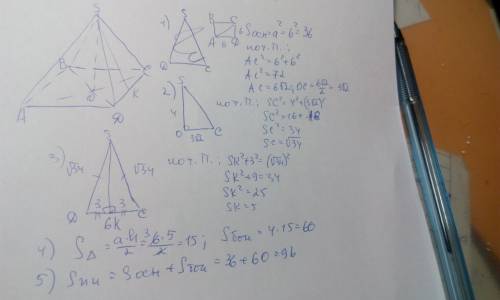 S
B
C
A
O
D
K
1) S
D C
B C
A D 6
Sосн = a² = 6² = 36
по т. П.:
AC² = 6² + 6²
AC² = 72
AC = 6√2; OC = 6√2/2 = 3√2
2) S
4
O 3√2 C
по т. П.: SC² = 4² + (3√2)²
SC² = 16 + 18
SC² = 34
SC = √34
3) S
√34 √34
D 3 3 C
6K
по т. П.: SK² + 3² = (√34)²
SK² + 9 = 34
SK² = 25
SK = 5
4) S△ = a·h/2 = 6·5/2 = 15; Sбок = 4·15 = 60
5) Sпп = Sосн + Sбок = 36 + 60 = 96